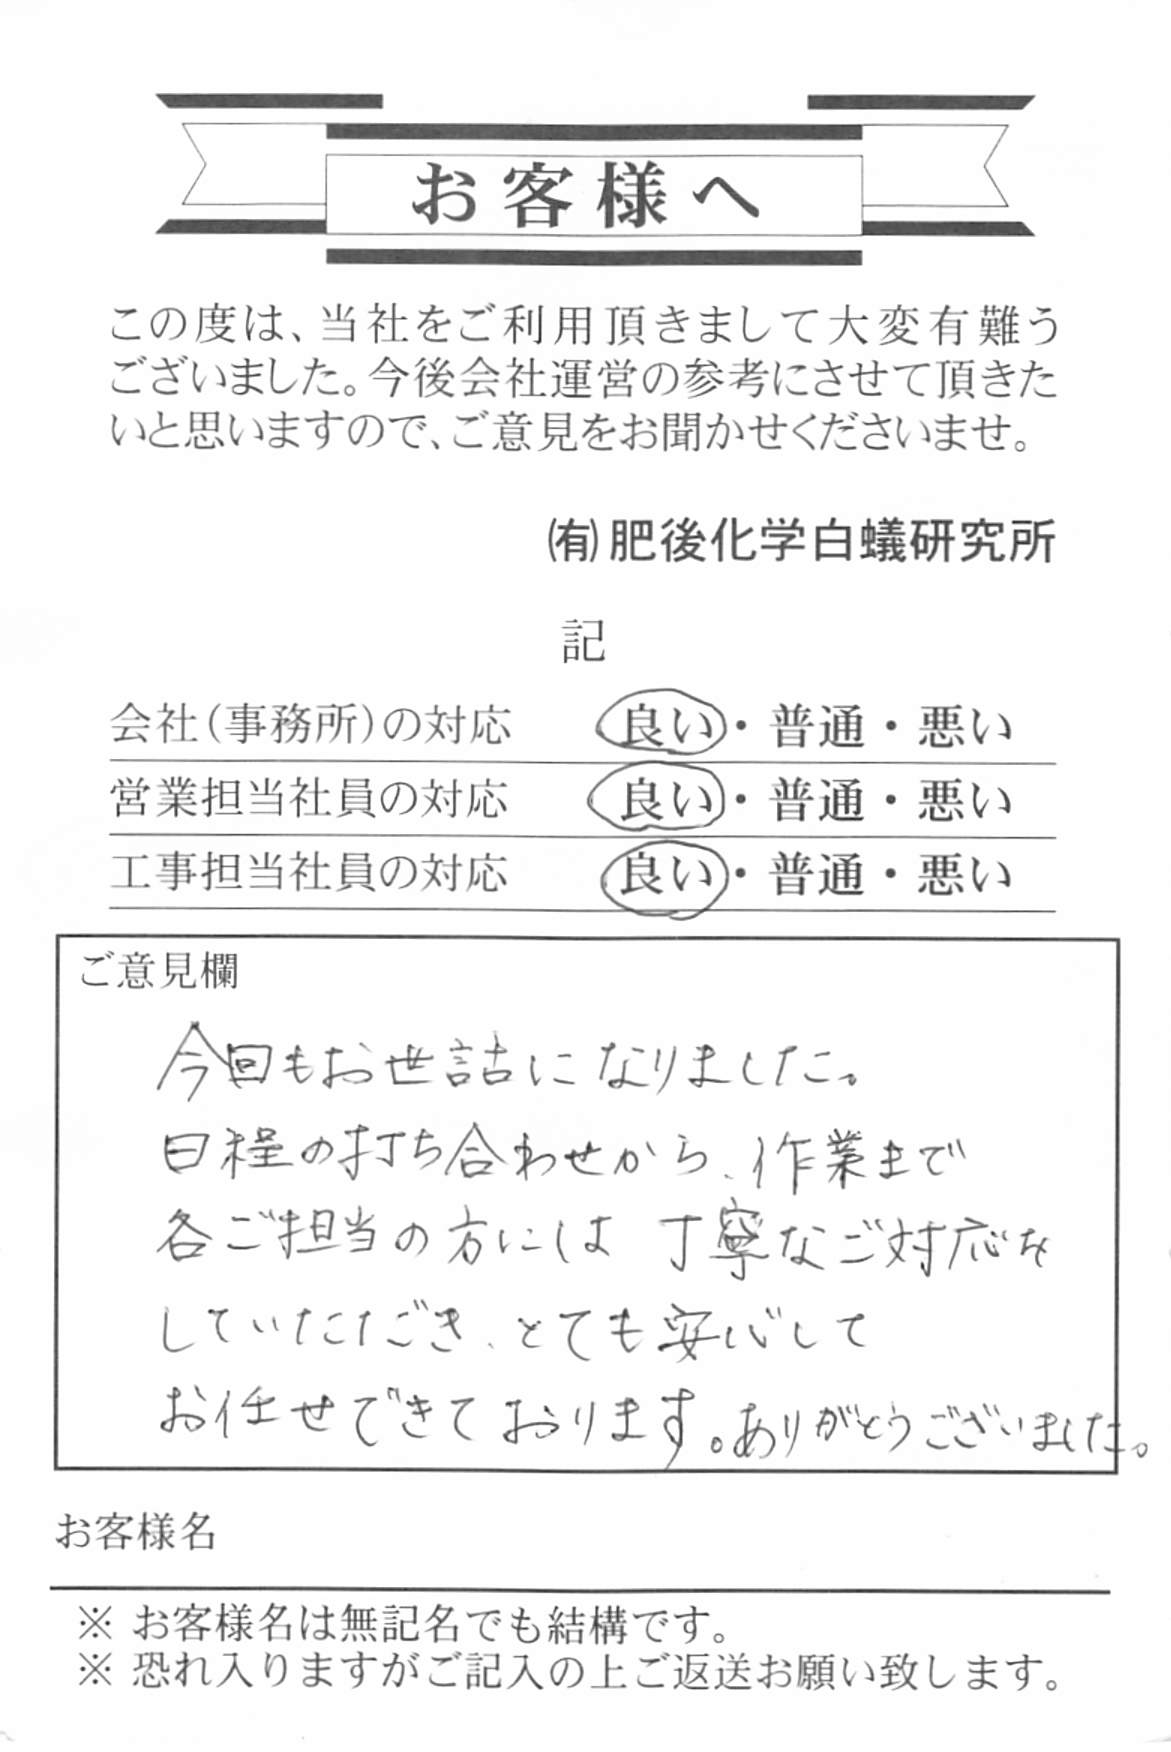 お客様へ
この度は、当社をご利用頂きまして大変有難う
ございました。今後会社運営の参考にさせて頂きた
いと思いますので、ご意見をお聞かせくださいませ。
㈲肥後化学白蟻研究所
記
会社(事務所)の対応 良い・普通・悪い
営業担当社員の対応 良い・普通・悪い
工事担当社員の対応 良い・普通・悪い
ご意見欄
今回もお世話になりました。
日程の打ち合わせから、作業まで
各ご担当の方にしは 丁寧なご対応を
していただき、とても安心して
お任せできております。ありがとうございました。
お客様名
※ お客様名は無記名でも結構です。
※ 恐れ入りますがご記入の上ご返送お願い致します。